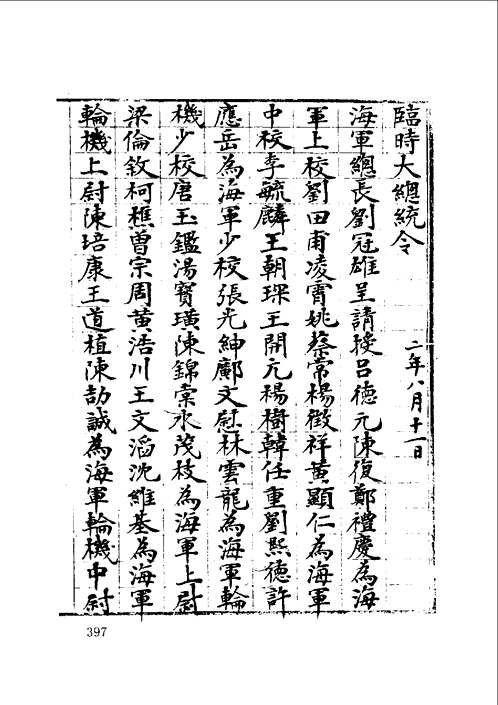 臨時大總統令
二年八月十一日
海軍總長劉冠雄呈請授呂德元陳復鄭禮慶為海
軍上校劉田甫凌霄姚葵常楊徵祥黃顯仁為海軍
中校李毓麟王朝琛王開元楊樹韓任重劉熙德許
應岳為海軍少校張光紳鄺文慰林雲龍為海軍輪
機少校唐玉鑑湯寶璜陳錦棠水茂枝為海軍上尉
梁倫敘柯樵曾宗周黃浩川王文滔沈維基為海軍
輪機上尉陳培康王道植陳劼誠為海軍輪機中尉
397